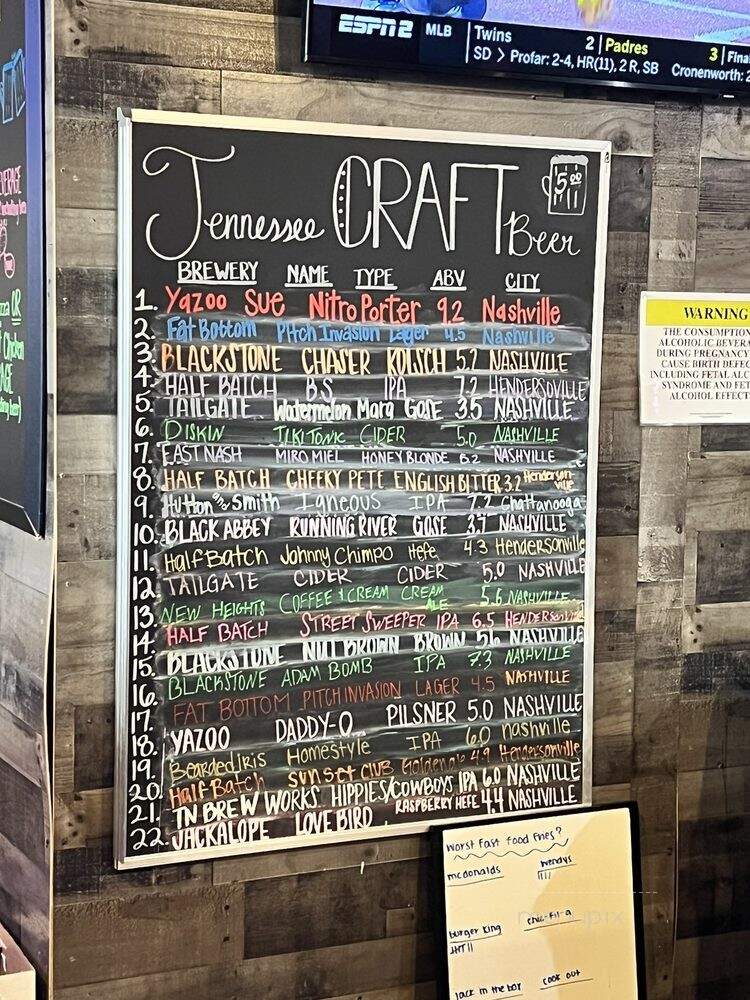 ESPN2 MLB Twins 2 Padres 3 Fina
SD > Profar: 2-4, HR(11), 2 R, SB Cronenworth: 2
Tennessee CRAFT Beer 5.00
BREWERY NAME TYPE ABV CITY
1. Yazoo Sue Nitro Porter 9.2 Nashville
2. Fat Bottom Pitch Invasion Lager 4.5 Nashville
3. BLACKSTONE CHASER KOLSCH 5.2 NASHVILLE
4. HALF BATCH B.S. IPA 7.2 HENDERSOVILLE
5. TAILGATE Watermelon Marg GOSE 3.5 NASHVILLE
6. DISKIN TIKI TONIC CIDER 5.0 NASHVILLE
7. EAST NASH MIRO MIEL HONEY BLONDE 6.2 NASHVILLE
8. HALF BATCH CHEEKY PETE ENGLISH BITTER 3.7 Henderson-ville
9. Hutton and Smith Igneous IPA 7.2 Chattanooga
10. BLACK ABBEY RUNNING RIVER GOSE 3.7 NASHVILLE
11. Half Batch Johnny Chimpo Hefe 4.3 Hendersonville
12. TAILGATE CIDER CIDER 5.0 NASHVILLE
13. NEW HEIGHTS COFFEE & CREAM CREAM ALE 5.6 NASHVILLE
14. HALF BATCH STREET SWEEPER IPA 6.5 HENDERSonville
15. BLACKSTONE NUT BROWN BROWN 5.6 NASHVILLE
16. BLACKSTONE ADAM BOMB IPA 7.3 NASHVILLE
17. FAT BOTTOM PITCH INVASION LAGER 4.5 NASHVILLE
18. YAZOO DADDY-O PILSNER 5.0 NASHVILLE
19. Bearded Iris Homestyle IPA 6.0 nashville
20. Half Batch sunset club Golden ale 4.9 Hendersonville
21. TN BREW WORKS HIPPIES/COWBOYS IPA 6.0 NASHVILLE
22. JACKALOPE LOVE BIRD RASPBERRY HEFE 4.4 NASHVILLE
WARNING
THE CONSUMPTION
ALCOHOLIC BEVERA
DURING PREGNANCY
CAUSE BIRTH DEFEC
INCLUDING FETAL ALC
SYNDROME AND FET
ALCOHOL EFFECT
worst fast food fries?
mcdonalds wendys
burger king chic-fil-a
jack in the box cook out
menupix